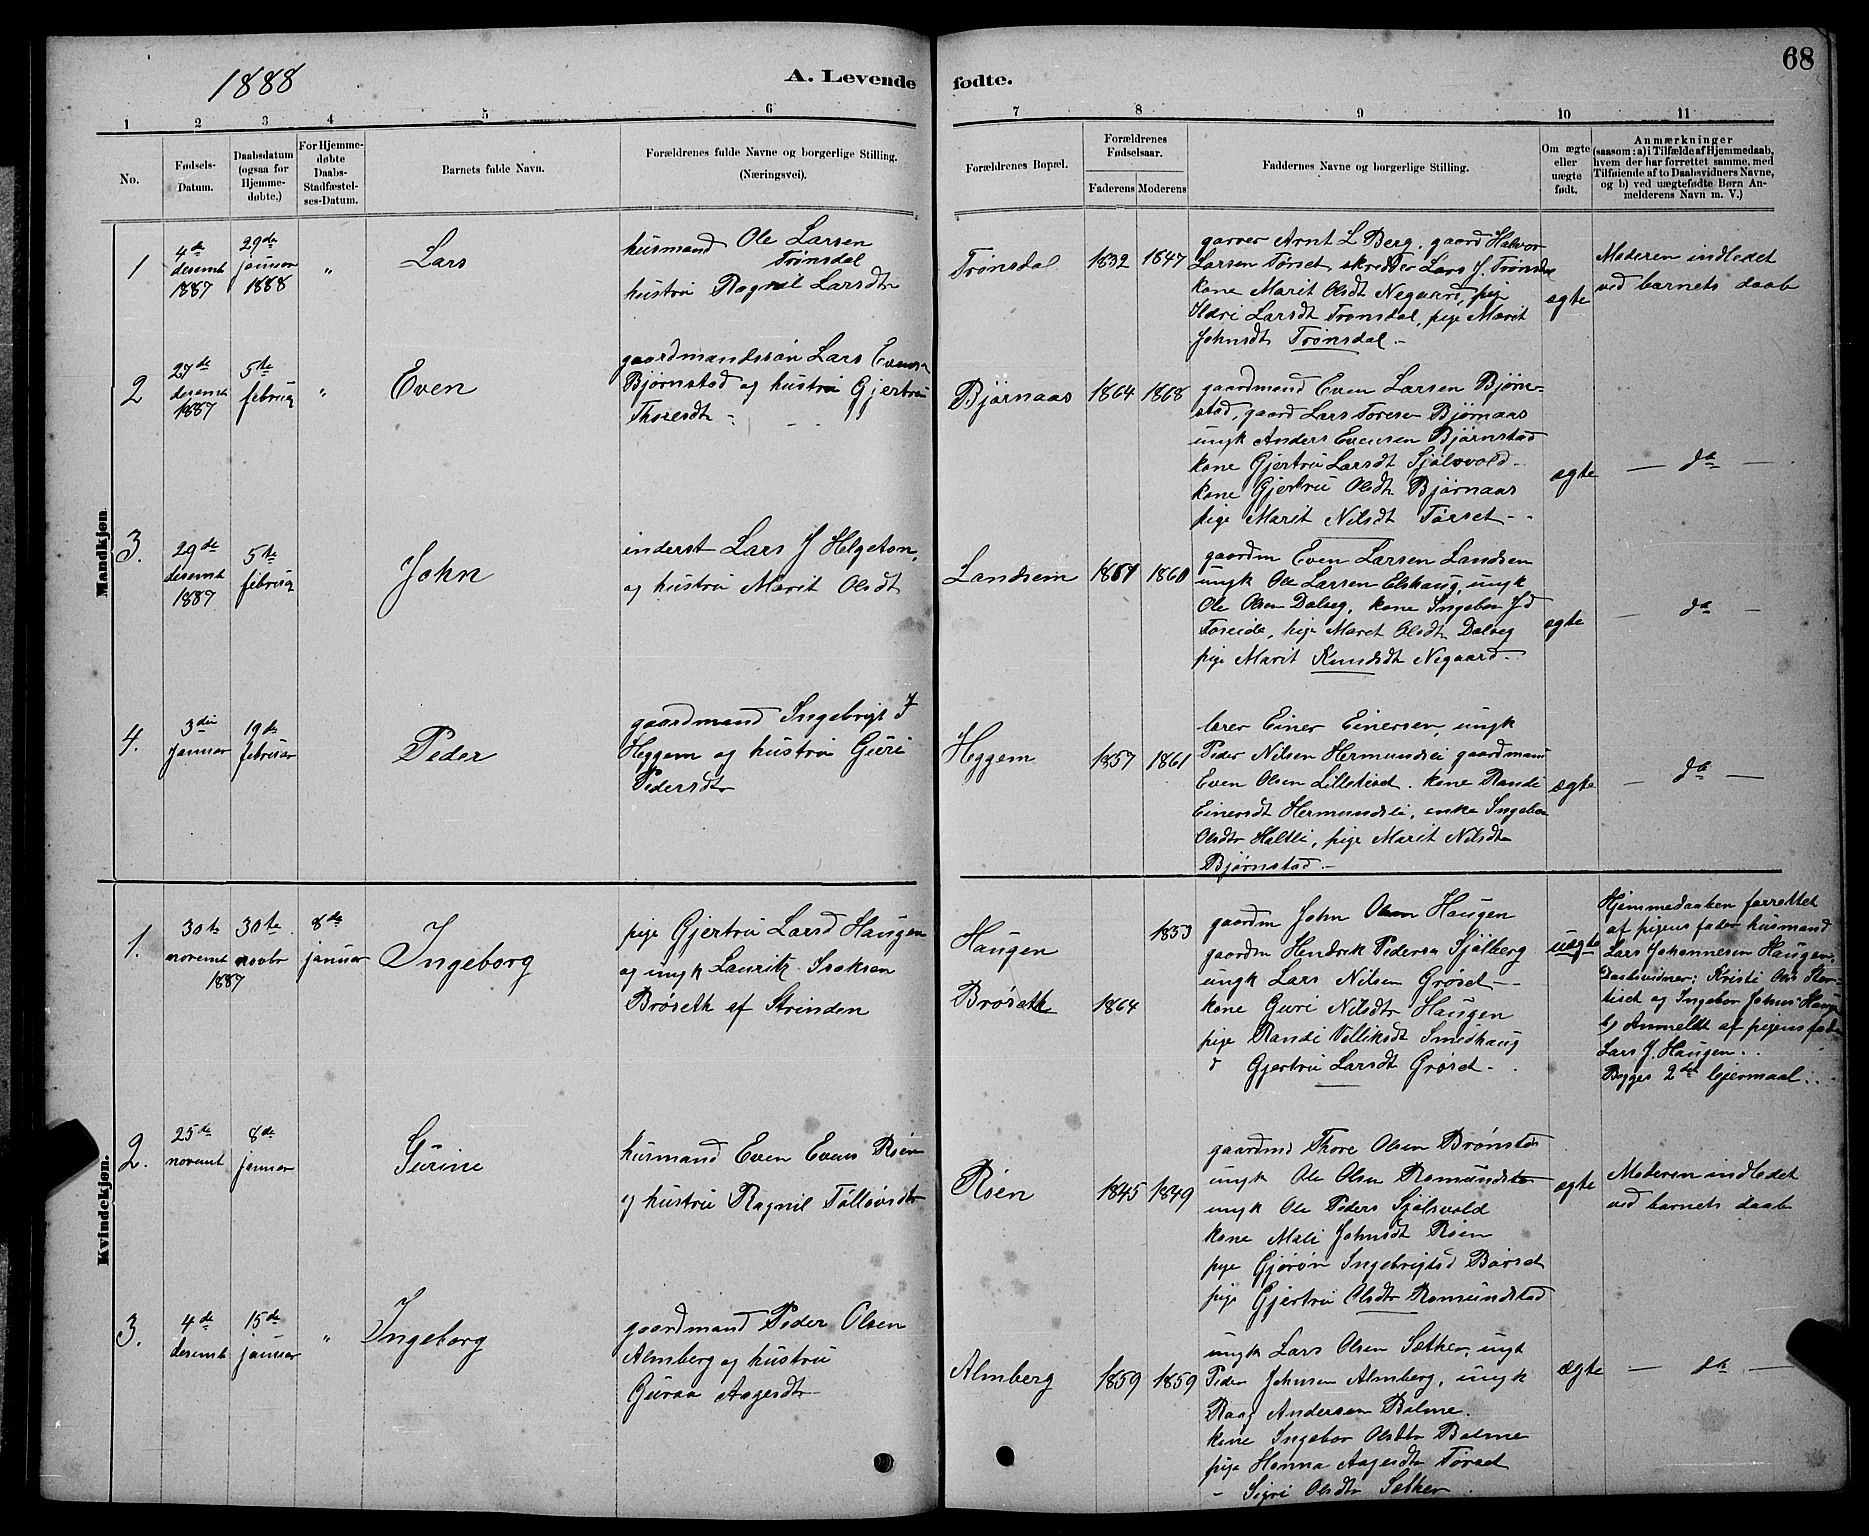 1888
A. Levende
1 2 3 4 5 6
No.
Fødsels-
Datum.
Daabsdatum
(ogsaa for
Hjemme-
døbte.)
For Hjemme-
døbte
Daabs-
Stadfæstel-
ses-Datum.
Barnets fulde Navn.
Forældrenes fulde Navne og borgerlige Stilling.
(Næringsvei).
Mandkjøn
1
4de
desemt
1887
29de
januar
1888
"
Lars
husmand Ole Larsen
Trønsdal
hustru Ragnil Larsdtr
2
27de
desemt
1887
5te
februar
"
Even
gaardmandssøn Lars Evensen
Bjørnstad og hustru Gjertru
Thoresdtr -
3.
29de
desemt
1887
5te
februar
John
inderst Lars J Helgeton,
og hustru Marit Olsdt
4.
3die
januar
19de
februar
Peder
gaardmand Ingebrigt J
Heggem og hustru Guri
Pedersdtr
Kvindekjøn.
1.
30te
novemt
1887
30te
novbr
8de
januar
Ingeborg
pige Gjertru Larsd Haugen
og ungk Lauritz Isaksen
Brøseth af Strinden
2.
25de
novemt
8de
januar
Gurine
husmand Even Evens Røen
og hustru Ragnil Tølløvsdtr
3.
4de
desemt
15de
januar
"
Ingeborg
gaardmand Peder Olsen
Almberg og hustru
Guraa Aagesdtr
68
fødte.
7 8 9 10 11
Forældrenes Bopæl.
Forældrenes
Fødselsaar.
Faderens Moderens
Faddernes Navne og borgerlige Stilling.
Om ægte
eller
uægte
født.
Anmærkninger
(saasom: a) i Tilfælde af Hjemmedaab,
hvem der har forrettet samme, med
Tilføiende af to Daabsvidners Navne,
og b) ved uægtefødte Børn An-
melderens Navn m. V.)
Trønsdal
1832 1847
garver Arnt L Berg. gaard Halvor
Larsen Tørset skredder Lars J. Trønsdal
kone Marit Olsdt Negaard, pige
Ildri Larsdt Trønsdal, pige Marit
Johnsdt Trønsdal -
ægte
Moderen indledet
ved barnets daab
Bjørnaas
1864 1868
gaardmand Even Larsen Bjørn-
stad, gaard Lars Toresen Bjørnaas
ungk Anders Evensen Bjørnstad
kone Gjertru Larsdt Sjølsvold -
kone Gjertru Olsdt Bjørnaas
pige Marit Nilsdt Tørset - -
ægte
— do —
Landsem
1860
gaardm Even Larsen Landsem
ungk Ole Larsen Elshaug, ungk
Ole Olsen Dalseg, kone Ingebor Jd
Foseide, pige Maret Olsdt Dalseg
pige Marit Knudsdt Negaard -
ægte
— do —
Heggem
1857 1861
lærer Einer Einersen, ungk
Peder Nilsen Hermundslii gaardmand
Even Olsen Lillekvad. kone Randi
Einersdt Hermundslii, enke Ingebor
Olsdtr Haltli, pige Marit Nilsdtr
Bjørnstad -
ægte
— do —
Haugen
Brøseth
1864
gaardm John Olsen Haugen
gaardm Hendrik Pedersen Sjølberg
ungk Lars Nilsen Grøset -
kone Guri Nilsdtr Haugen
pige Randi Smedhaug
Gjertru Larsdt Grøset -
uægte
Hjemmedaaben forrettet
af pigens fader husmand
Lars Johannesen Haugen,
Daabsvidner: Kristi Ols
og Ingebor Johns Haugen
b) Anmeldt af pigens fader
Lars J. Haugen.
Begges 2det lejermaal.
Røen
1845 1849
gaardmd Thore Olsen Brønstad
ungk Ole Olsen Romundstad
ungk Ole Peders Sjølsvold
kone Mali Johnsdt Røen
pige Gjørøn Ingebrigtsd Børset
pige Gjertru Olsdtr Romundstad
ægte
Moderen indledet
ved barnets daab
Almberg
1859 1859
ungk Lars Olsen Sæther, ungk
Peder Johnsen Almberg, ungk
Andersen Bolme.
kone Ingebor Olsdtr Bolme
pige Hanna Aagesdtr Tørset
- Sigri Olsdtr Sæther.
ægte
— do —